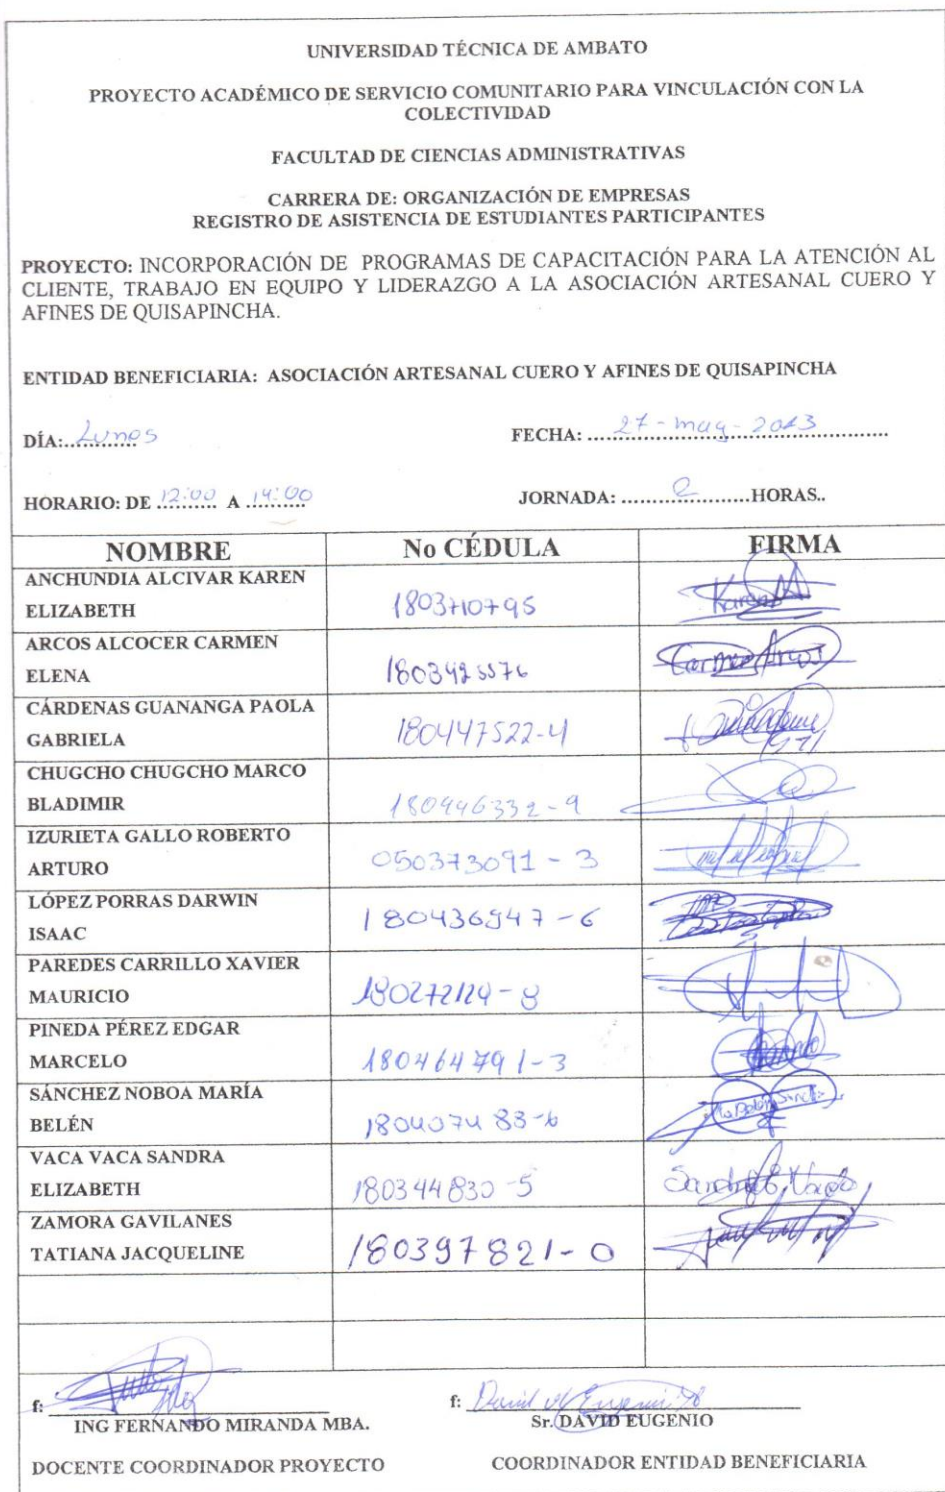 UNIVERSIDAD TÉCNICA DE AMBATO
PROYECTO ACADÉMICO DE SERVICIO COMUNITARIO PARA VINCULACIÓN CON LA
COLECTIVIDAD
FACULTAD DE CIENCIAS ADMINISTRATIVAS
CARRERA DE: ORGANIZACIÓN DE EMPRESAS
REGISTRO DE ASISTENCIA DE ESTUDIANTES PARTICIPANTES
PROYECTO: INCORPORACIÓN DE PROGRAMAS DE CAPACITACIÓN PARA LA ATENCIÓN AL
CLIENTE, TRABAJO EN EQUIPO Y LIDERAZGO A LA ASOCIACIÓN ARTESANAL CUERO Y
AFINES DE QUISAPINCHA.
ENTIDAD BENEFICIARIA: ASOCIACIÓN ARTESANAL CUERO Y AFINES DE QUISAPINCHA
DÍA: Lunes FECHA: 27 - may - 2013
HORARIO: DE 12:00 A 14:00 JORNADA: 2 HORAS..
NOMBRE No CÉDULA FIRMA
ANCHUNDIA ALCIVAR KAREN
ELIZABETH 1803710795 Karen
ARCOS ALCOCER CARMEN
ELENA Carmen Arcos
CÁRDENAS GUANANGA PAOLA
GABRIELA 180447522-4
CHUGCHO CHUGCHO MARCO
BLADIMIR 180446332-9
IZURIETA GALLO ROBERTO
ARTURO 050373091-3
LÓPEZ PORRAS DARWIN
ISAAC 180436947-6
PAREDES CARRILLO XAVIER
MAURICIO 180272124-8
PINEDA PÉREZ EDGAR
MARCELO 180464791-3
SÁNCHEZ NOBOA MARÍA
BELÉN 180407483-6
VACA VACA SANDRA
ELIZABETH 180344830-5 Sandra E. Vaca
ZAMORA GAVILANES
TATIANA JACQUELINE 180397821-0
f: f: David Eugenio
ING FERNANDO MIRANDA MBA. Sr. DAVID EUGENIO
DOCENTE COORDINADOR PROYECTO COORDINADOR ENTIDAD BENEFICIARIA